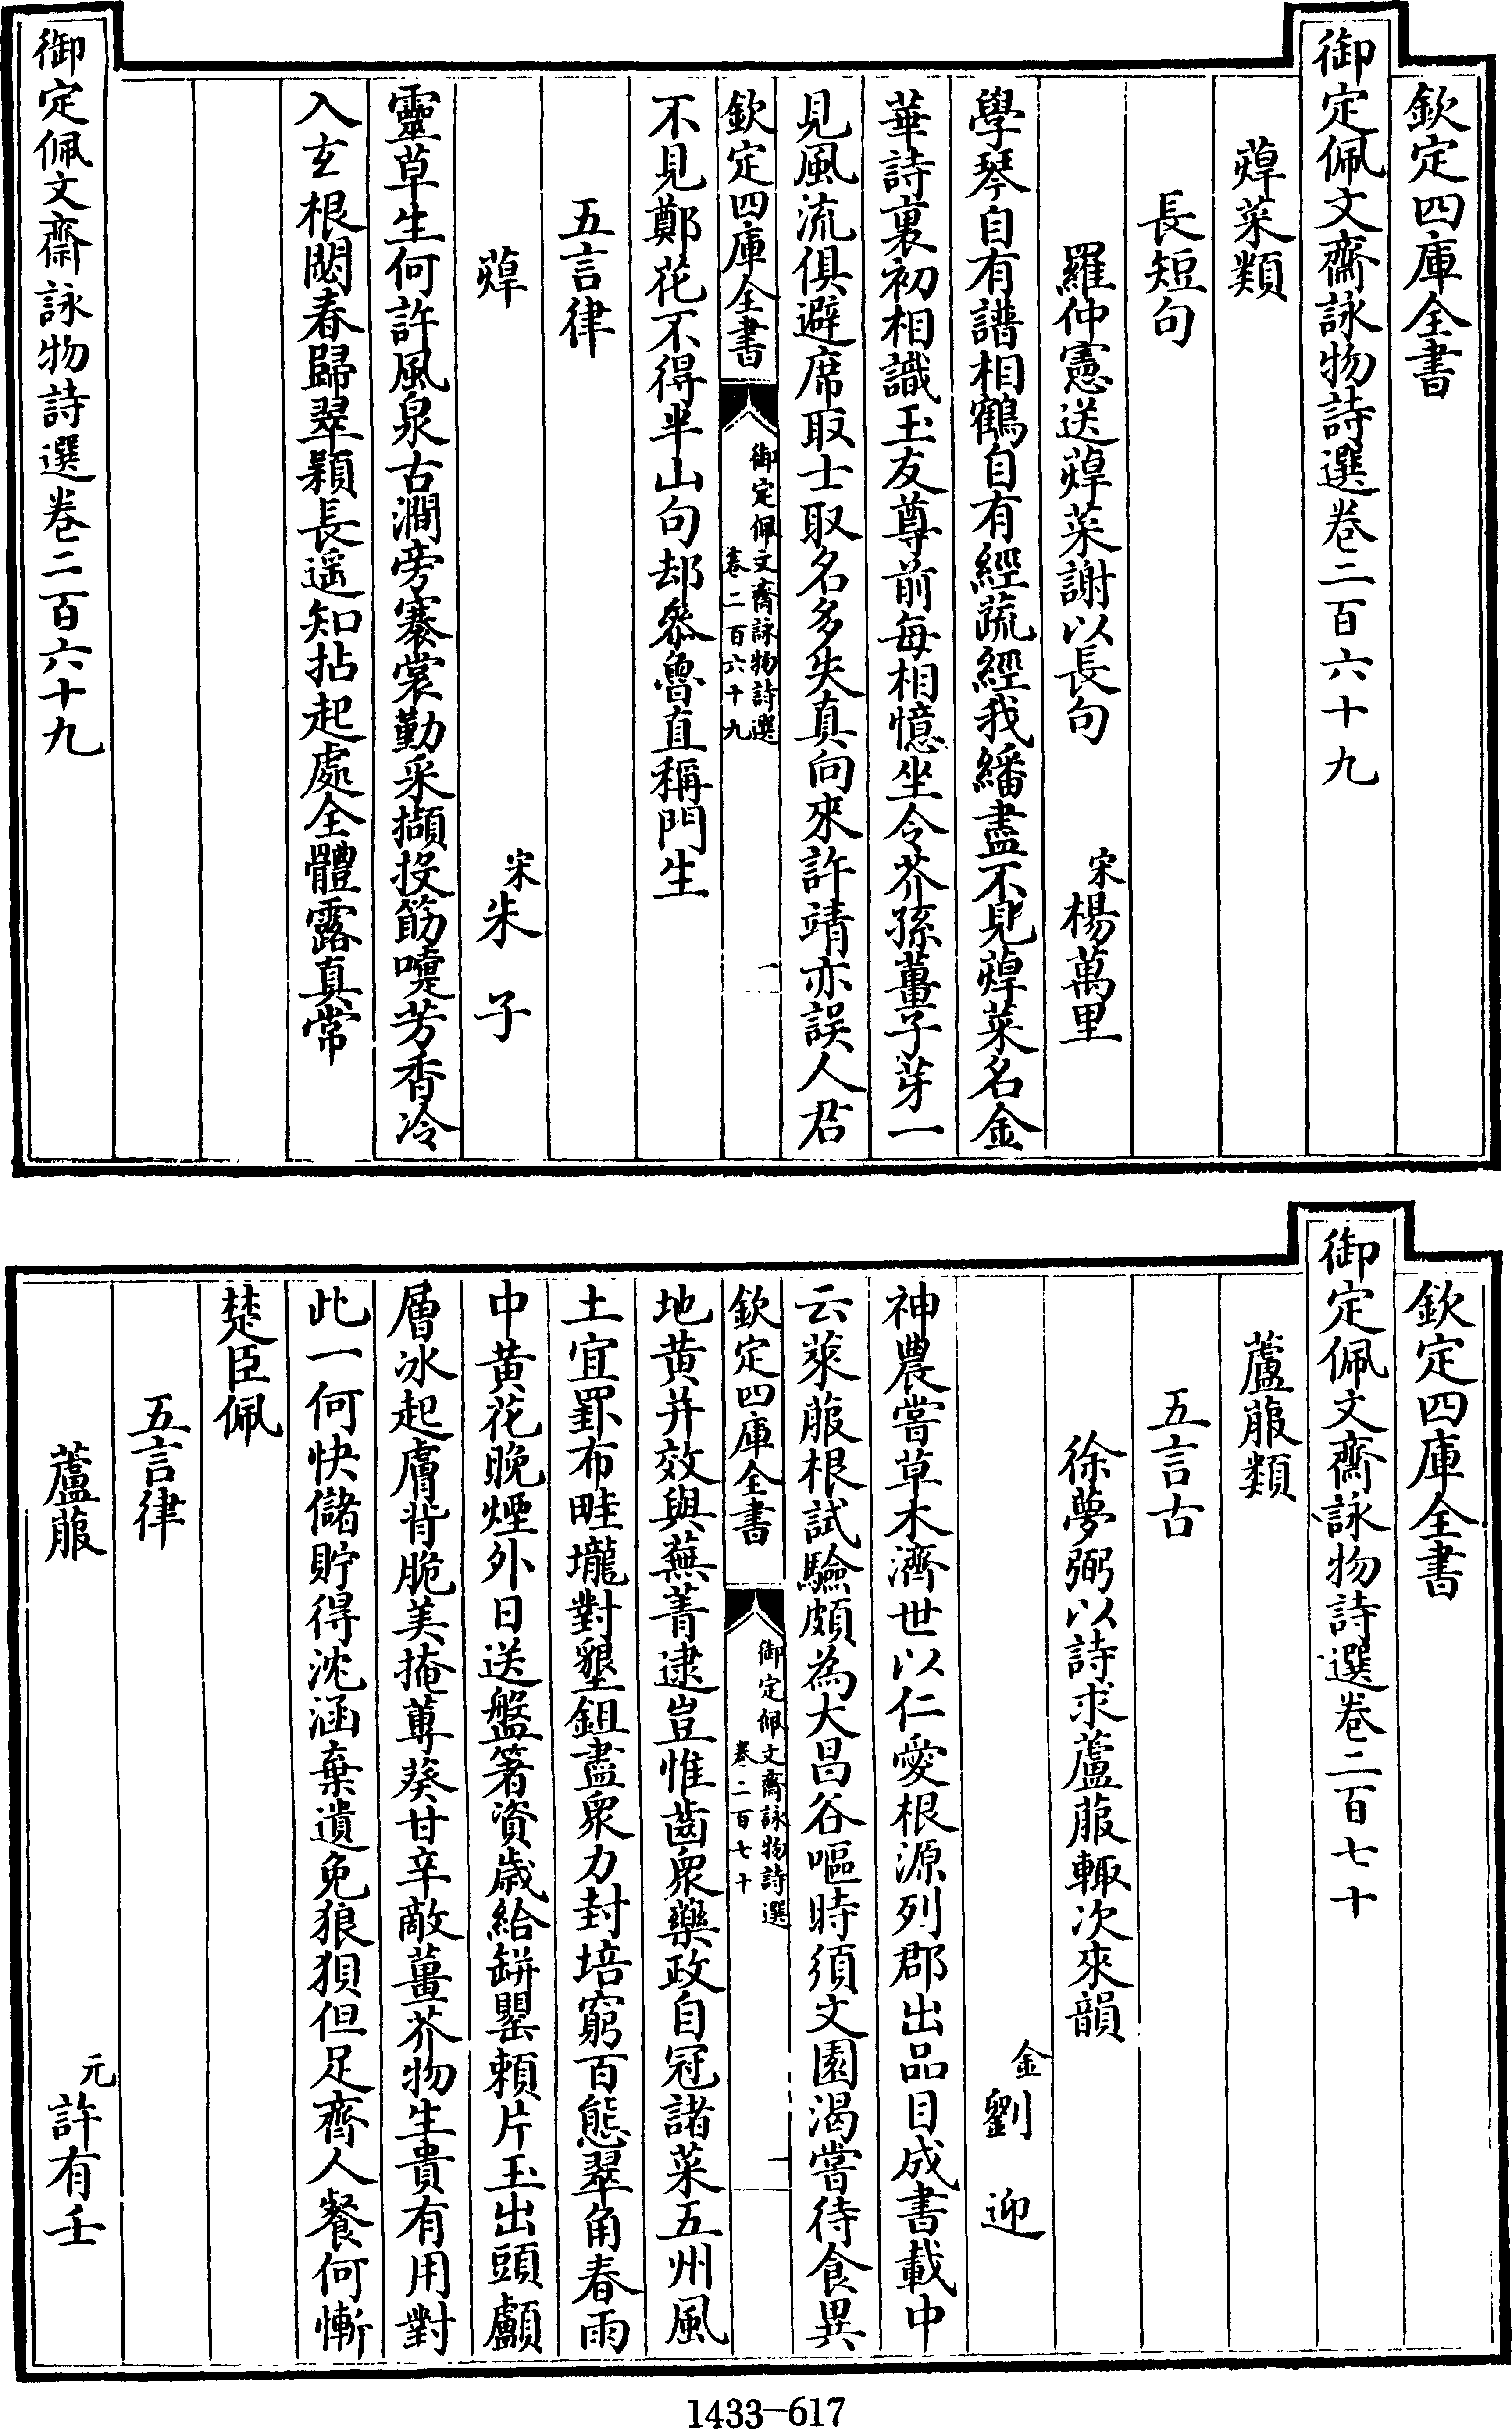 欽定四庫全書
御定佩文齋詠物詩選卷二百六十九
蔊菜類
長短句
羅仲憲送蔊菜謝以長句 宋楊萬里
學琴自有譜相鶴自有經蔬經我繙盡不見蔊菜名金
華詩裏初相識玉友尊前每相憶坐令芥孫薑子芽一
見風流俱避席取士取名多失真向來許靖亦誤人君
欽定四庫全書
御定佩文齋詠物詩選
卷二百六十九
一
不見鄭花不得半山句却參魯直稱門生
五言律
蔊 宋朱子
靈草生何許風泉古澗旁褰裳勤采擷投筯嚏芳香冷
入玄根閟春歸翠穎長遥知拈起處全體露真常
御定佩文齋詠物詩選卷二百六十九
欽定四庫全書
御定佩文齋詠物詩選卷二百七十
蘆菔類
五言古
徐夢弼以詩求蘆菔輙次來韻
金劉迎
神農嘗草木濟世以仁愛根源列郡出品目成書載中
云萊菔根試驗頗為大昌谷嘔時須文園渴嘗待食異
欽定四庫全書
御定佩文齋詠物詩選
卷二百七十
一
地黄并效與蕪菁逮豈惟齒衆藥政自冠諸菜五州風
土宜罫布畦壠對墾鉏盡衆力封培窮百態翠角春雨
中黄花晚煙外日送盤箸資歲給缾罌賴片玉出頭顱
層冰起膚背脆美掩蓴葵甘辛敵薑芥物生貴有用對
此一何快儲貯得沈涵棄遺免狼狽但足齊人餐何慚
楚臣佩
五言律
蘆菔 元許有壬
1433-617